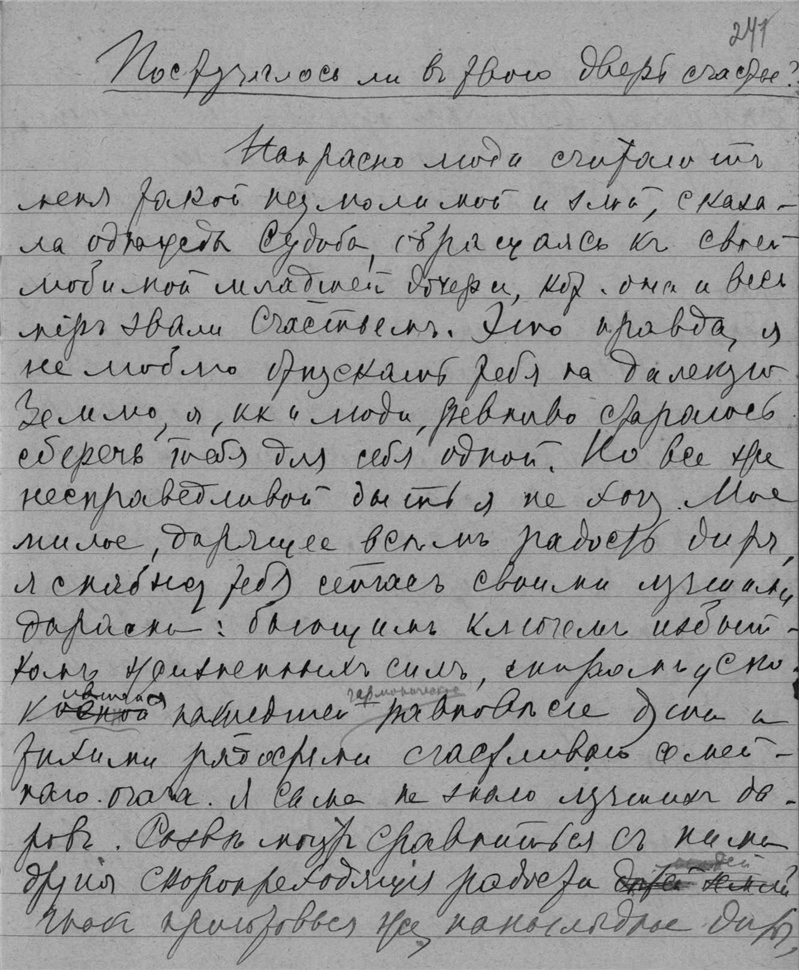 241
Постучалось ли въ твою дверь счастье?
Напрасно люди считаютъ
меня такой неумолимой и злой, сказа-
ла однажды Судьба, обращаясь къ своей
любимой младшей дочери, кот. она и весь
міръ звали Счастьемъ. Это правда, я
не люблю отпускать тебя на далекую
Землю, я, кк и люди, ревниво стараюсь
сберечь тебя для себя одной. Но все же
несправедливой быть я не хочу. Мое
милое, дарящее всѣмъ радость дитя,
я снабжу тебя сейчасъ своими лучшими
дарами: бьющимъ ключемъ избыт-
комъ жизненныхъ силъ, миромъ успо-
коившейся нашедшей гармоническое равновѣсіе души и
тихими радостями счастливаго семей-
наго очага. Я сама не знаю лучшихъ да-
ровъ. Развѣ могутъ сравниться съ ними
другія скоропреходящія радости людей
приготовься же, ненаглядное дитя,